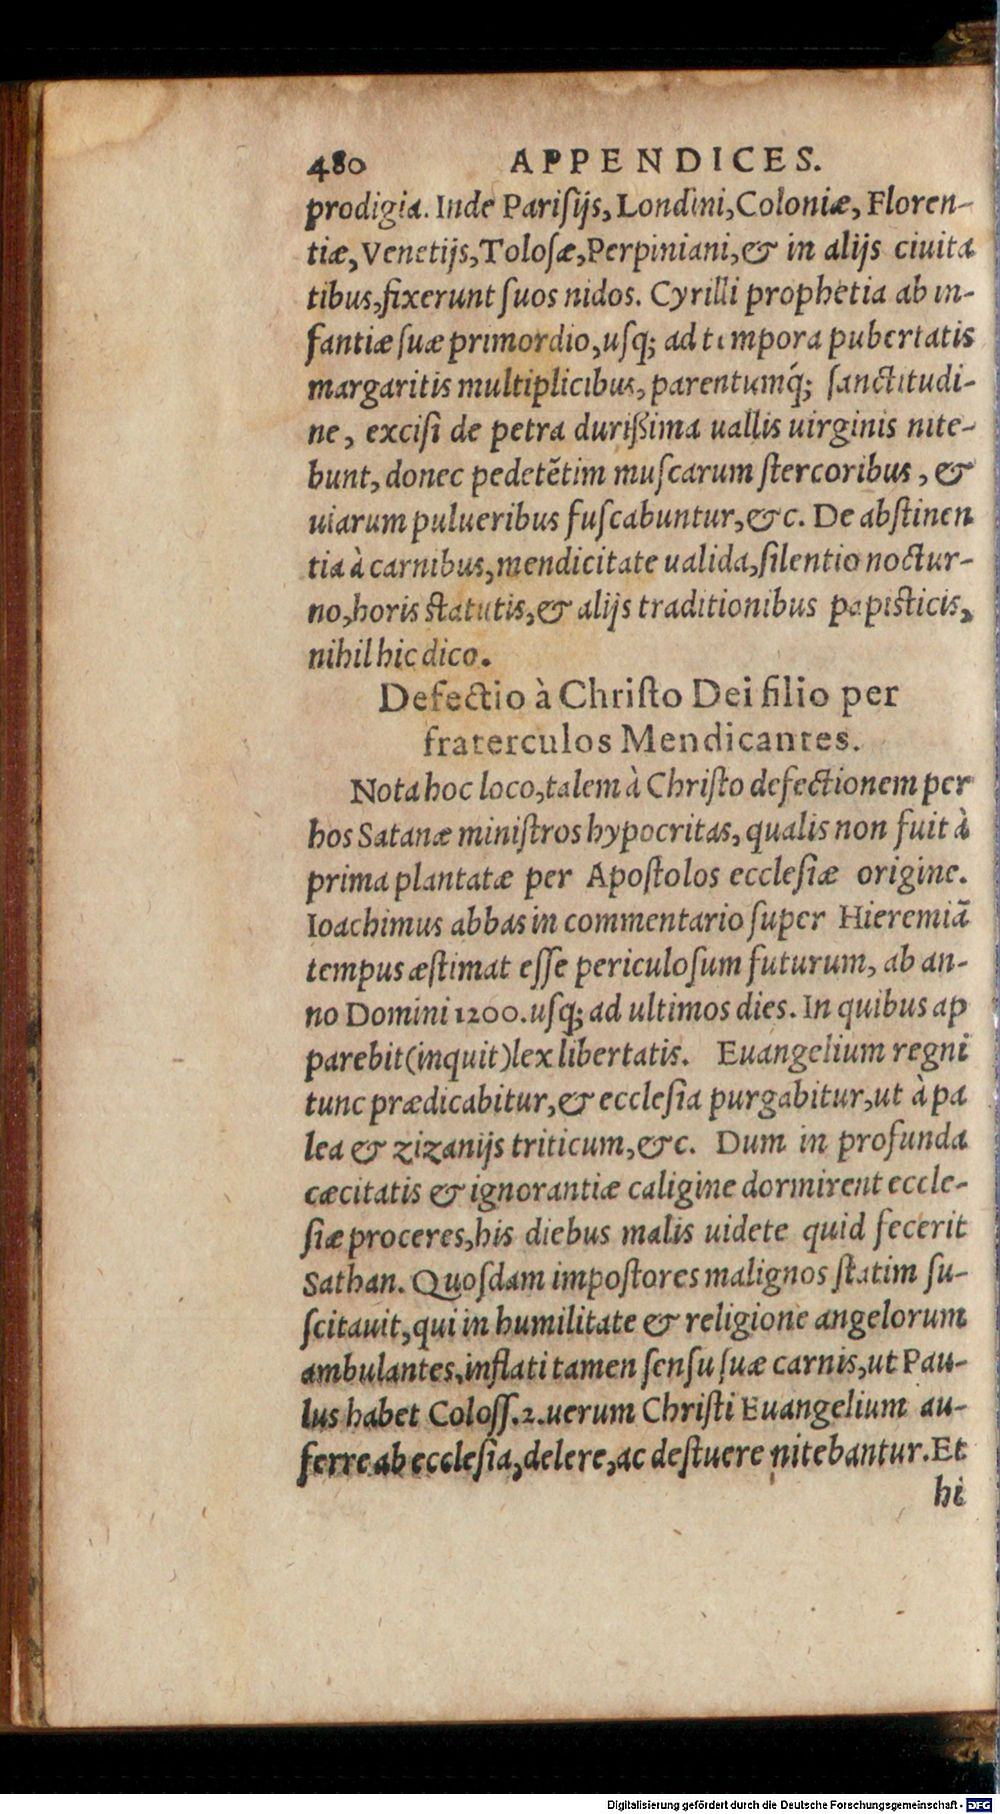 480 APPENDICES.
prodigia. Inde Pariſijs, Londini, Coloniæ, Floren-
tiæ, Venetijs, Toloſæ, Perpiniani, & in alijs ciuita
tibus, fixerunt ſuos nidos. Cyrilli prophetia ab in-
fantiæ ſuæ primordio, uſq; ad tempora pubertatis
margaritis multiplicibus, parentumq́; ſanctitudi-
ne, exciſi de petra durißima uallis uirginis nite-
bunt, donec pedetẽtim muſcarum ſtercoribus, &
uiarum pulueribus fuſcabuntur, &c. De abſtinen
tia à carnibus, mendicitate ualida, ſilentio noctur-
no, horis ſtatutis, & alijs traditionibus papiſticis,
nihil hic dico.
Defectio à Chriſto Dei filio per
fraterculos Mendicantes.
Nota hoc loco, talem à Chriſto defectionem per
hos Satanæ miniſtros hypocritas, qualis non fuit à
prima plantatæ per Apoſtolos eccleſiæ origine.
Ioachimus abbas in commentario ſuper Hieremiã
tempus æſtimat eſſe periculoſum futurum, ab an-
no Domini 1200. uſq; ad ultimos dies. In quibus ap
parebit (inquit) lex libertatis. Euangelium regni
tunc prædicabitur, & eccleſia purgabitur, ut à pa
lea & zizanijs triticum, &c. Dum in profunda
cæcitatis & ignorantiæ caligine dormirent eccle-
ſiæ proceres, his diebus malis uidete quid fecerit
Sathan. Quoſdam impoſtores malignos ſtatim ſu-
ſcitauit, qui in humilitate & religione angelorum
ambulantes, inflati tamen ſenſu ſuæ carnis, ut Pau-
lus habet Coloſſ. 2. uerum Chriſti Euangelium au-
ferre ab eccleſia, delere, ac deſtuere nitebantur. Et
hi
Digitalisierung gefördert durch die Deutsche Forschungsgemeinschaft - DFG